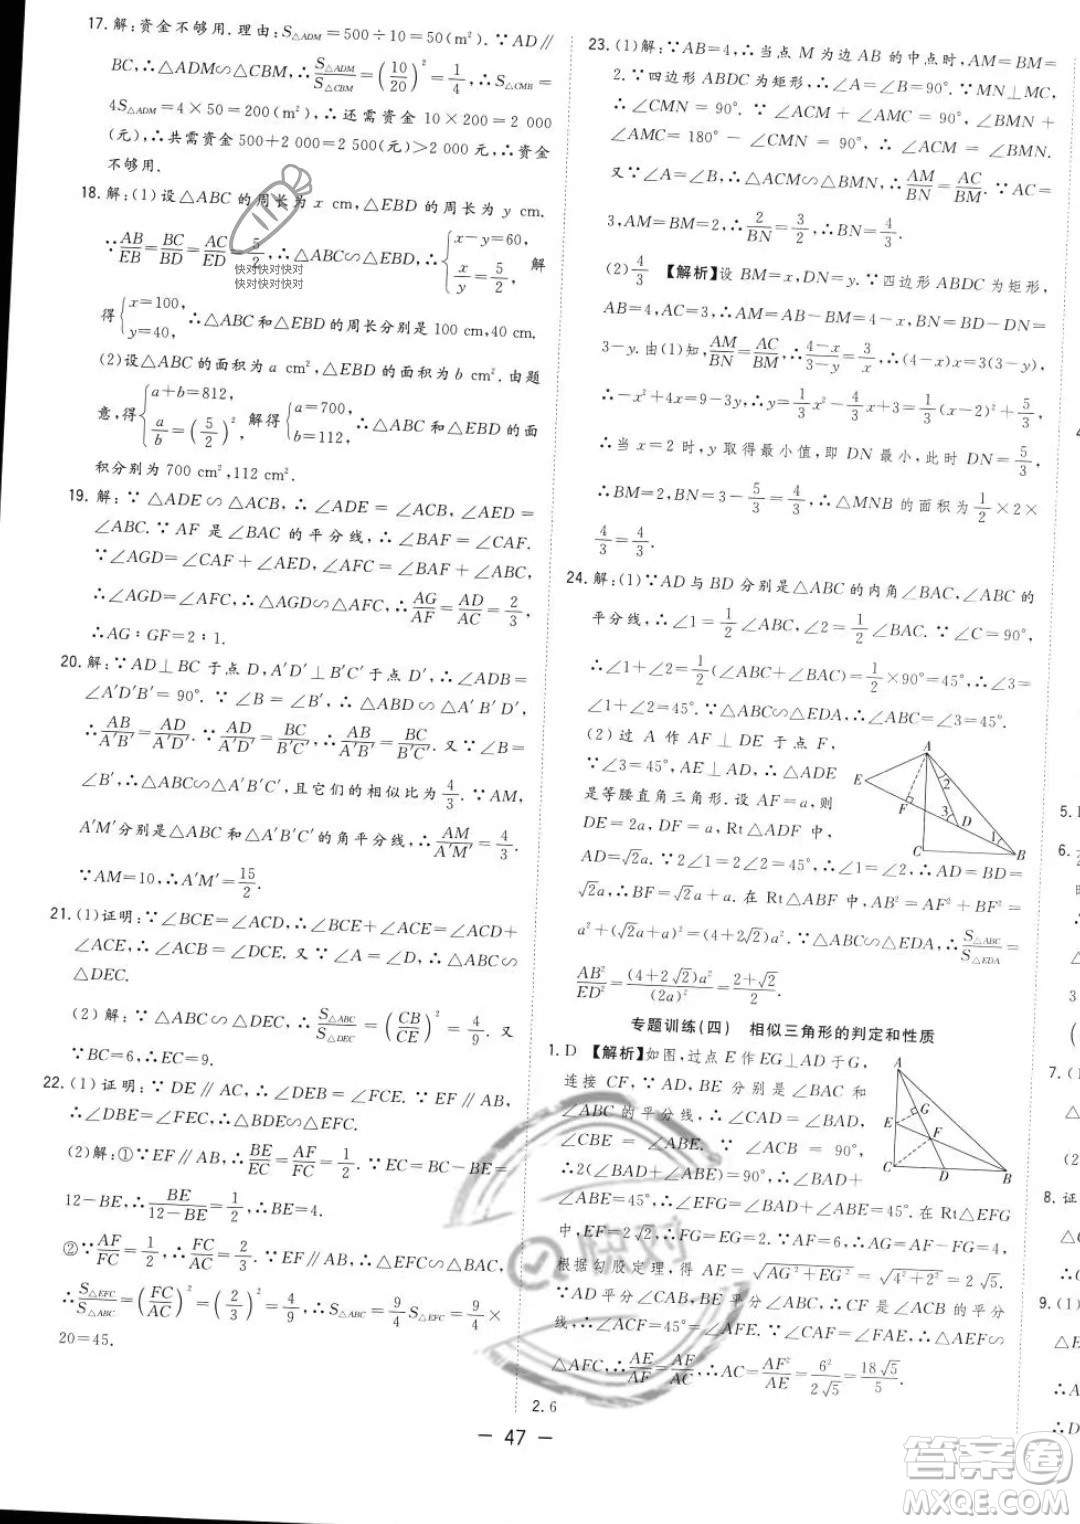 17. 解:资金不够用.理由:S△ADM=500÷10=50(m²).∵AD∥
BC,∴△ADM∽△CBM,∴S△ADM/S△CBM=(10/20)²=1/4,∴S△CMB=
4S△ADM=4×50=200(m²),∴还需资金10×200=2 000
(元),∴共需资金500+2 000=2 500(元)>2 000元,∴资金
不够用.
18. 解:(1)设△ABC的周长为x cm,△EBD的周长为y cm.
∵AB/EB=BC/BD=AC/ED=5/2,∴△ABC∽△EBD,∴{x-y=60, x/y=5/2, 解
得{x=100, y=40, ∴△ABC和△EBD的周长分别是100 cm,40 cm.
(2)设△ABC的面积为a cm²,△EBD的面积为b cm².由题
意,得{a+b=812, a/b=(5/2)², 解得{a=700, b=112, ∴△ABC与△EBD的面
积分别为700 cm²,112 cm².
19. 解:∵△ADE∽△ACB,∴∠ADE=∠ACB,∠AED=
∠ABC.∵AF是∠BAC的平分线,∴∠BAF=∠CAF.
∵∠AGD=∠CAF+∠AED,∠AFC=∠BAF+∠ABC,
∴∠AGD=∠AFC,∴△AGD∽△AFC,∴AG/AF=AD/AC=2/3,
∴AG∶GF=2∶1.
20. 解:∵AD⊥BC于点D,A′D′⊥B′C′于点D′,∴∠ADB=
∠A′D′B′=90°.∵∠B=∠B′,∴△ABD∽△A′B′D′,
∴AB/A′B′=AD/A′D′.∵AD/A′D′=BC/B′C′,∴AB/A′B′=BC/B′C′.又∵∠B=
∠B′,∴△ABC∽△A′B′C′,且它们的相似比为4/3.∵AM,
A′M′分别是△ABC与△A′B′C′的角平分线,∴AM/A′M′=4/3.
∵AM=10,∴A′M′=15/2.
21. (1)证明:∵∠BCE=∠ACD,∴∠BCE+∠ACE=∠ACD+
∠ACE,∴∠ACB=∠DCE.又∵∠A=∠D,∴△ABC∽
△DEC.
(2)解:∵△ABC∽△DEC,∴S△ABC/S△DEC=(CB/CE)²=4/9.又
∵BC=6,∴EC=9.
22. (1)证明:∵DE∥AC,∴∠DEB=∠FCE.∵EF∥AB,
∴∠DBE=∠FEC,∴△BDE∽△EFC.
(2)解:①∵EF∥AB,∴BE/EC=AF/FC=1/2.∵EC=BC-BE=
12-BE,∴BE/(12-BE)=1/2,∴BE=4.
②∵AF/FC=1/2,∴FC/AC=2/3.∵EF∥AB,∴△EFC∽△BAC,
∴S△EFC/S△ABC=(FC/AC)²=(2/3)²=4/9,∴S△ABC=9/4S△EFC=9/4×
20=45.
快对快对快对
快对快对快对
23. (1)解:∵AB=4,∴当点M为边AB的中点时,AM=BM=
2.∵四边形ABDC为矩形,∴∠A=∠B=90°.∵MN⊥MC,
∴∠CMN=90°.∵∠ACM+∠AMC=90°,∠BMN+
∠AMC=180°-∠CMN=90°,∴∠ACM=∠BMN.
又∵∠A=∠B,∴△ACM∽△BMN,∴AM/BN=AC/BM.∵AC=
3,AM=BM=2,∴2/BN=3/2,∴BN=4/3.
(2)4/3 【解析】设BM=x,DN=y.∵四边形ABDC为矩形,
AB=4,AC=3,∴AM=AB-BM=4-x,BN=BD-DN=
3-y.由(1)知,AM/BN=AC/BM,∴(4-x)/(3-y)=3/x,∴(4-x)x=3(3-y),
∴-x²+4x=9-3y,∴y=1/3x²-4/3x+3=1/3(x-2)²+5/3,
∴当x=2时,y取得最小值,即DN最小,∴DN=5/3,
∴BM=2,BN=3-5/3=4/3,∴△MNB的面积为1/2×2×
4/3=4/3.
24. 解:(1)∵AD与BD分别是△ABC的内角∠BAC,∠ABC的
平分线,∴∠1=1/2∠ABC,∠2=1/2∠BAC.∵∠C=90°,
∴∠1+∠2=1/2(∠ABC+∠BAC)=1/2×90°=45°,∴∠3=
∠1+∠2=45°.∵△ABC∽△EDA,∴∠ABC=∠3=45°.
(2)过A作AF⊥DE于点F,
∵∠3=45°,AE⊥AD,∴△ADE
是等腰直角三角形.设AF=a,则
DE=2a,DF=a,Rt△ADF中,
AD=√2a.∵2∠1=2∠2=45°,∴∠1=∠2,∴AD=BD=
√2a,∴BF=√2a+a.在Rt△ABF中,AB²=AF²+BF²=
a²+(√2a+a)²=(4+2√2)a².∵△ABC∽△EDA,∴S△ABC/S△EDA=
AB²/ED²=(4+2√2)a²/(2a)²=(2+√2)/2.
A
E
2
F
3
D
1
C
B
专题训练(四) 相似三角形的判定和性质
1. D 【解析】如图,过点E作EG⊥AD于G,
连接CF,∵AD,BE分别是∠BAC和
∠ABC的平分线,∴∠CAD=∠BAD,
∠CBE=∠ABE.∵∠ACB=90°,
∴2(∠BAD+∠ABE)=90°,∴∠BAD+
∠ABE=45°,∴∠EFG=∠BAD+∠ABE=45°.在Rt△EFG
中,EF=2√2,∴FG=EG=2.∵AF=6,∴AG=AF-FG=4.
根据勾股定理,得AE=√(AG²+EG²)=√(4²+2²)=2√5.
∵AD平分∠CAB,BE平分∠ABC,∴CF是∠ACB的平分
线,∴∠ACF=45°=∠AFE.∵∠CAF=∠FAE,∴△AEF∽
△AFC,∴AE/AF=AF/AC,∴AC=AF²/AE=6²/2√5=18√5/5.
A
G
E
F
C
D
B
2. 6
— 47 —
快对
5. 1
6.
7. (1
(2
8. 证
9. (1)
答案圈
MXQE.COM